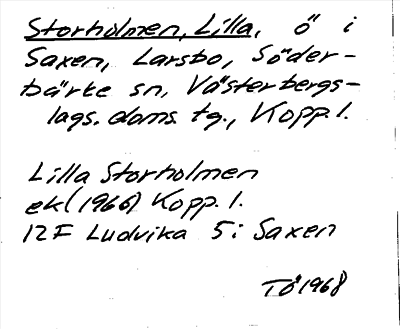 Storholmen, Lilla, ö i
Saxen, Larsbo, Söder-
bärke sn, Västerbergs-
lags. doms. tg., Kopp. l.
Lilla Storholmen
ek (1966) Kopp. l.
12F Ludvika 5 i Saxen
TÖ 1968